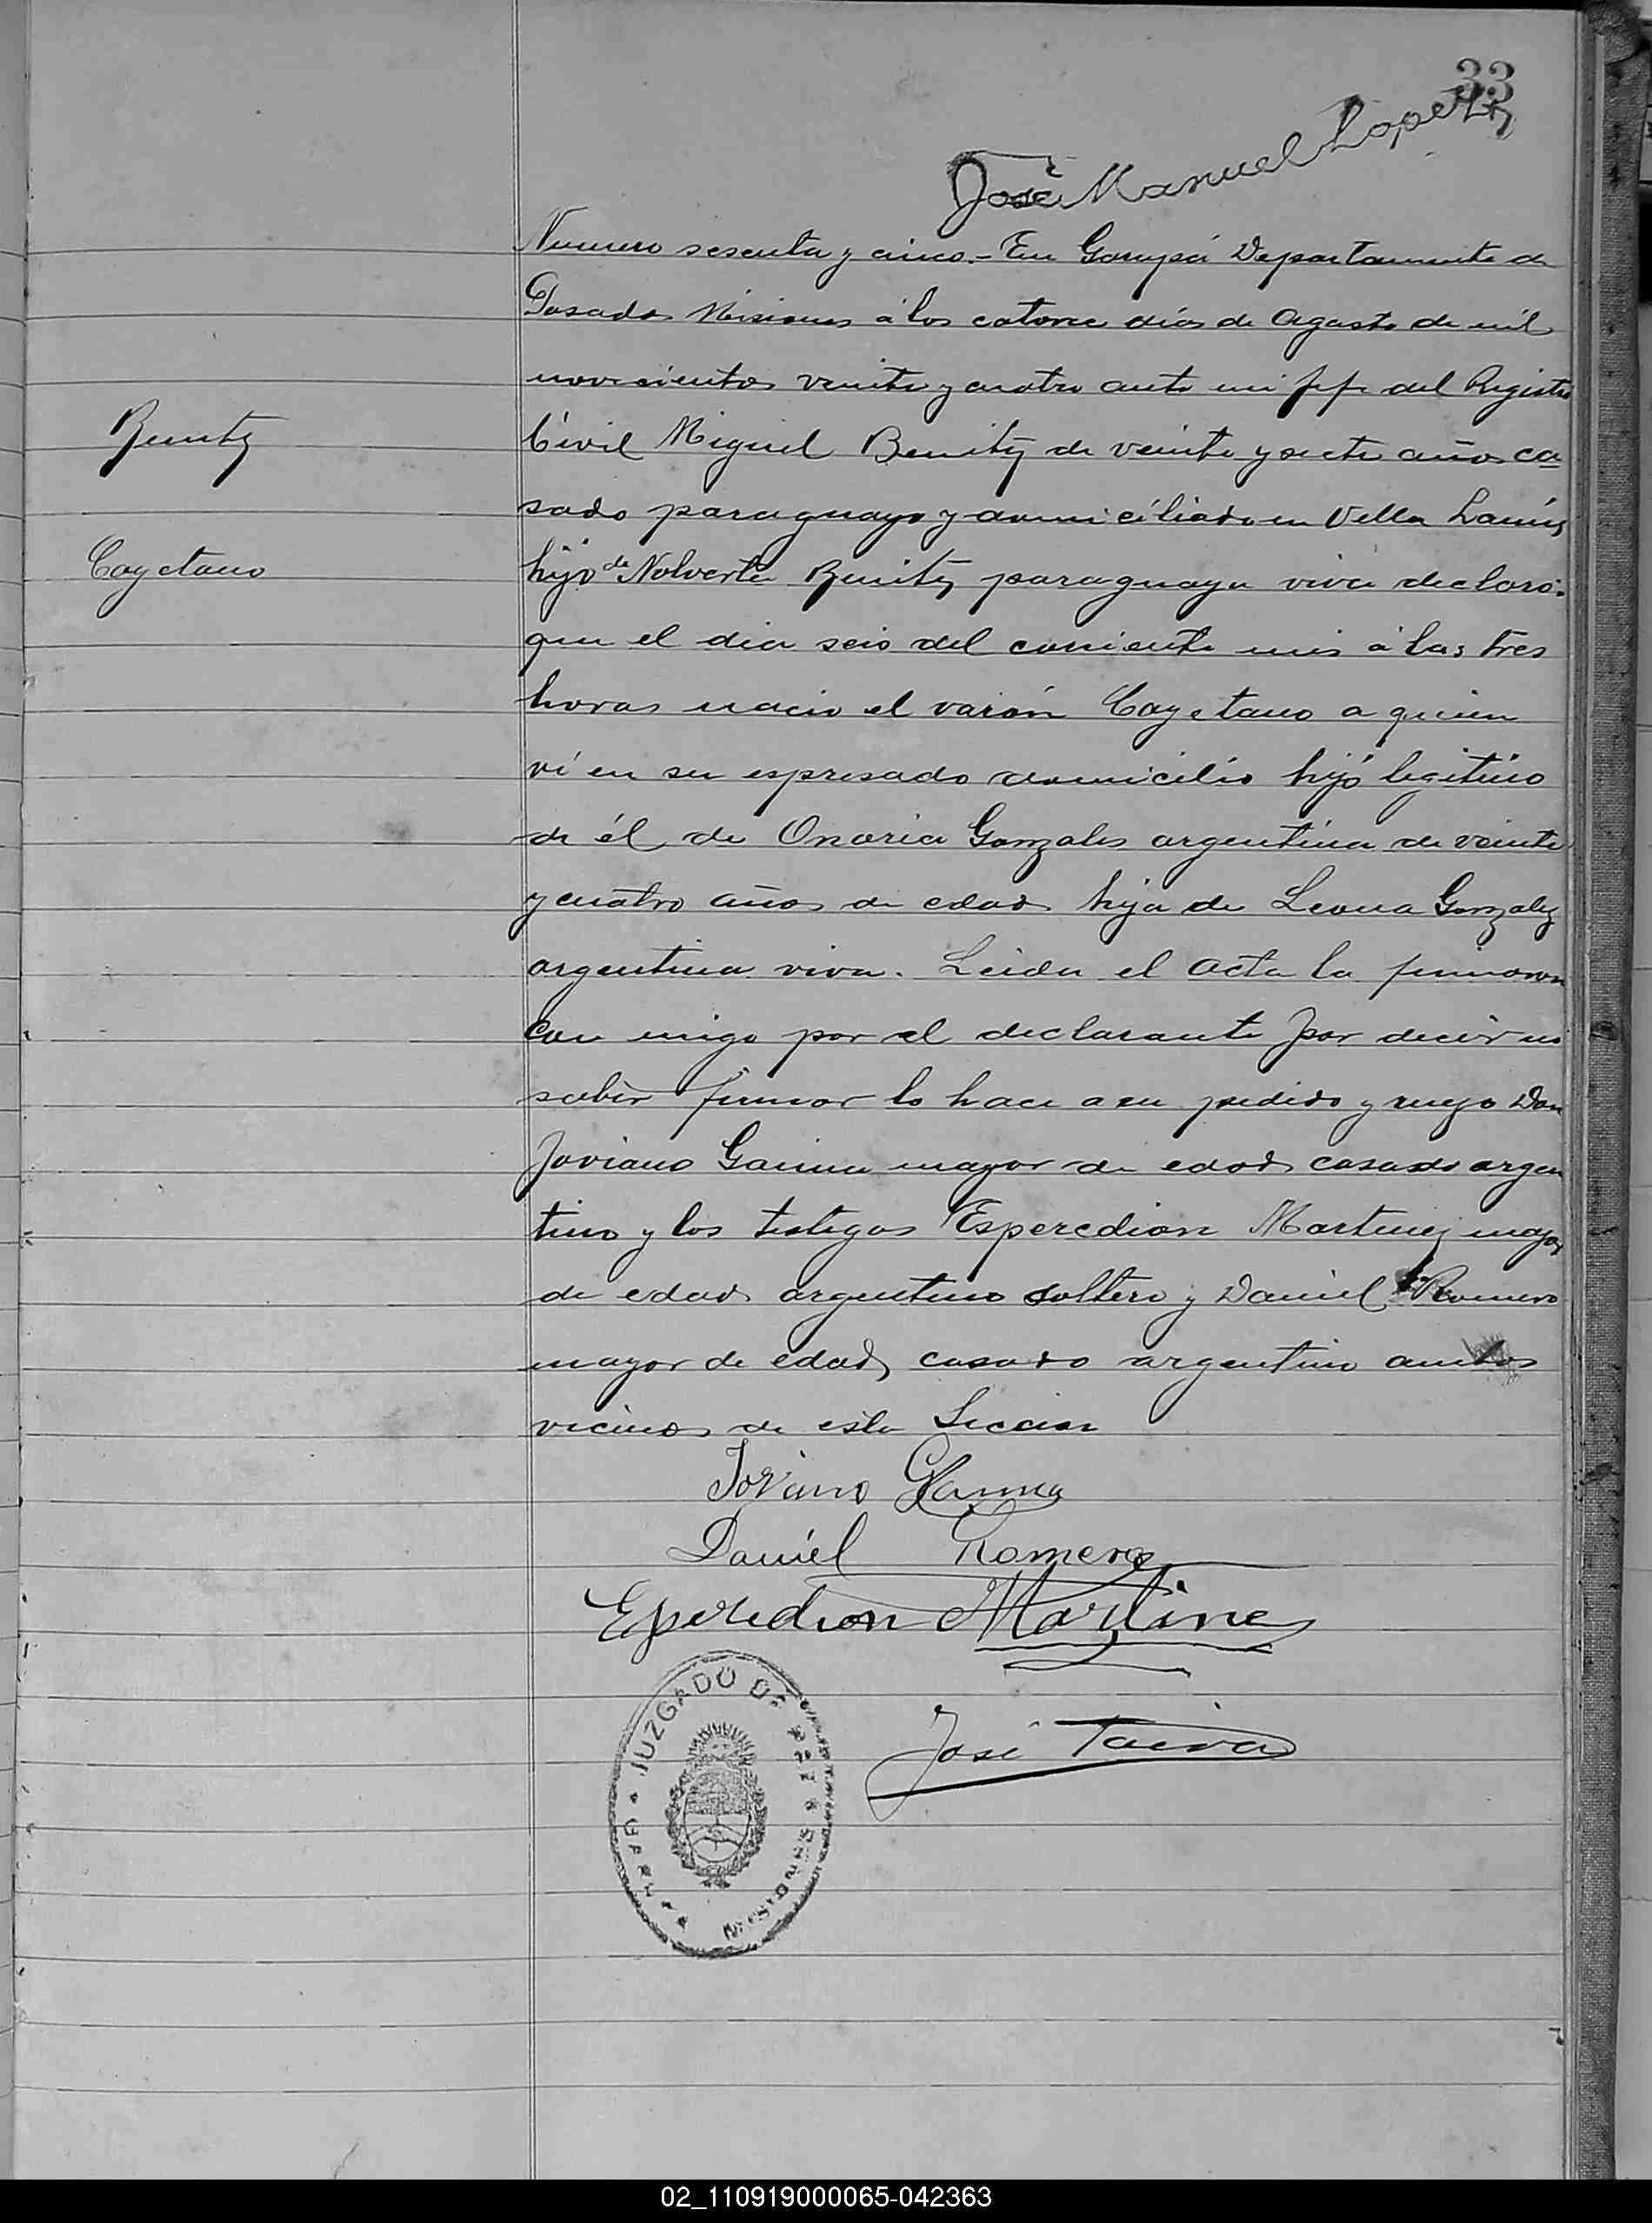 33
José Manuel Lopez
Numero sesenta y cinco.- En Garupá Departamento de
Posadas Misiones á los catorce días de Agosto de mil
novecientos veinte y cuatro ante mi jefe del Registro
Benitez
Civil Miguel Benitez de veinte y siete años ca
sado paraguayo y domiciliado en Villa Lanús
Cayetano
hijo de Nolverta Benitez paraguaya viva declaró:
que el dia seis del corriente mes á las tres
horas nacio el varón Cayetano a quien
ví en su espresado domicilio hijo legitimo
de él de Onoria Gonzales argentina de veinte
y cuatro años de edad hija de Leona Gonzalez
argentina viva. Leida el acta la firmaron
con migo por el declarante por decir no
saber firmar lo hace a su pedido y ruego Don
Joviano mayor de edad casado argen
tino y los testigos Esperedion Martinez mayor
de edad argentino soltero y Daniel Romero
mayor de edad casado argentino ambos
vecinos de esta Seccion
Joviano
Daniel Romero
Eperedion Martinez
José
JUZGADO DE PAZ
MISIONES
02_110919000065-042363